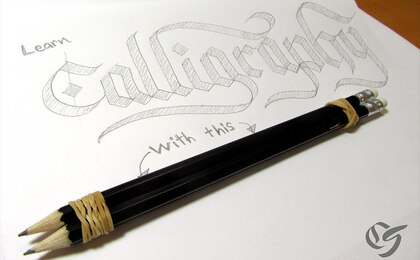 Learn
Calligraphy
with this